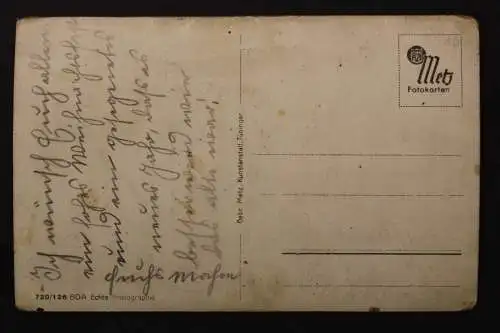 Ich wünsch Euch allen
ein frohes Weihnachtsfest
und ein gesegnetes
neues Jahr, daß es
besser wird wie
das alte war!
Fuchs
Metz
Fotokarten
Gebr. Metz, Kunstanstalt, Tübingen
720/126 BDA Echte Photographie